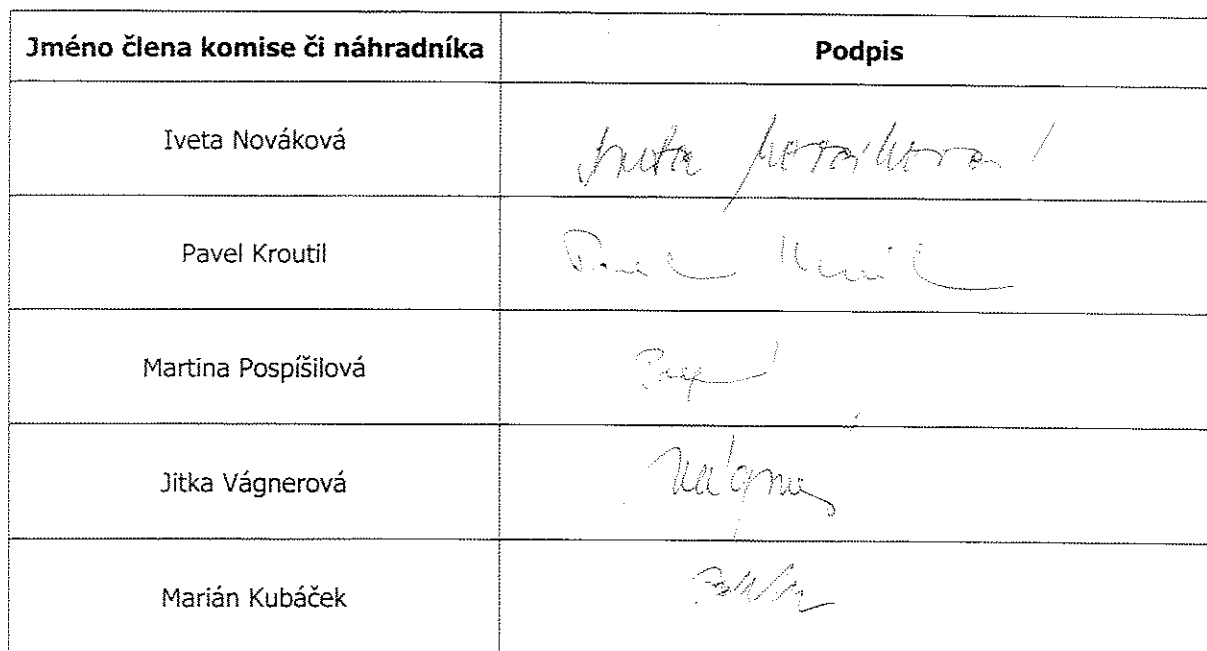 Jméno člena komise či náhradníka Podpis
Iveta Nováková Iveta Nováková
Pavel Kroutil
Martina Pospíšilová
Jitka Vágnerová
Marián Kubáček